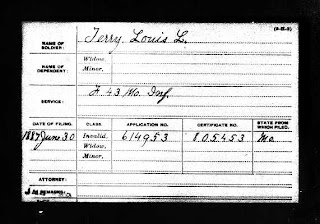 (3-111-3)
NAME OF SOLDIER: Terry, Louis L.
NAME OF DEPENDENT: Widow,
Minor,
SERVICE: F. 43 Mo. Inf.
DATE OF FILING. CLASS. APPLICATION NO. CERTIFICATE NO. STATE FROM WHICH FILED.
1887 June 30 Invalid, 614953 805453 Mo.
Widow,
Minor,
ATTORNEY: